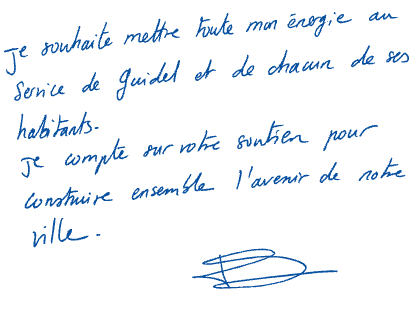 Je souhaite mettre toute mon énergie au
service de Guidel et de chacun de ses
habitants.
Je compte sur votre soutien pour
construire ensemble l'avenir de notre
ville.